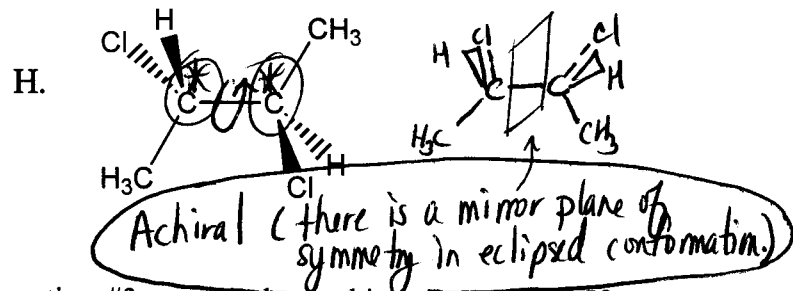 H.
H
Cl
CH₃
C C
H₃C
H
Cl
H Cl Cl
C C H
H₃C CH₃
Achiral (there is a mirror plane of
symmetry in eclipsed conformation.)